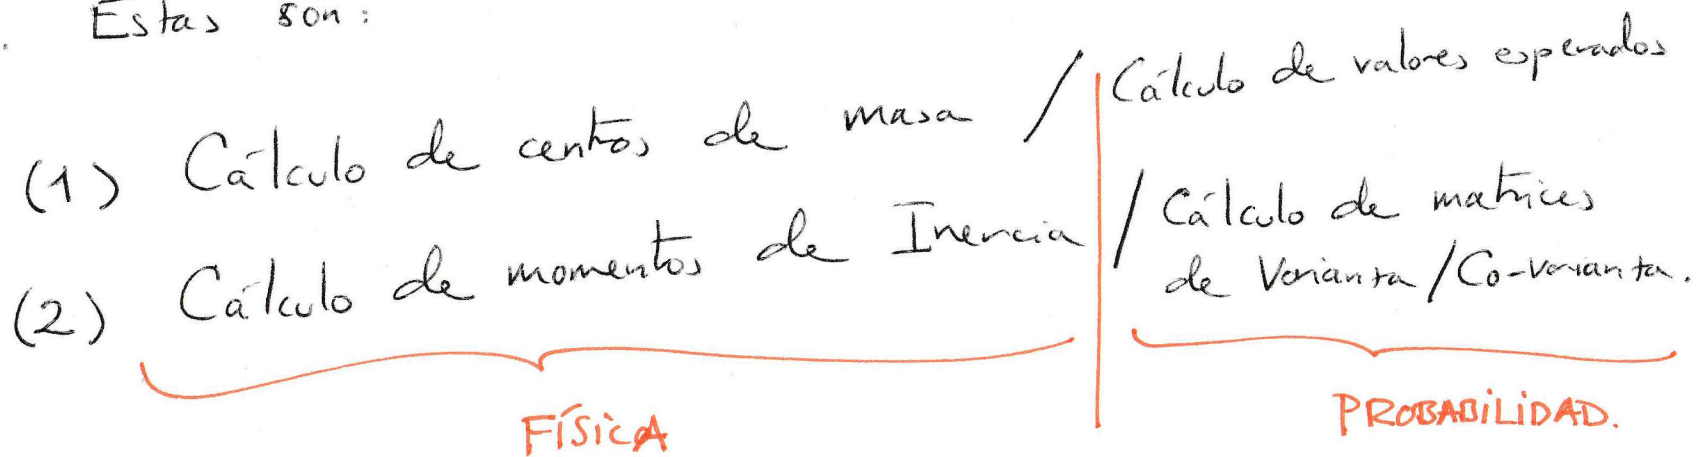 Estas son:
(1) Cálculo de centros de masa / Cálculo de valores esperados
(2) Cálculo de momentos de Inercia / Cálculo de matrices
de Varianza / Co-varianza.
FÍSICA
PROBABILIDAD.